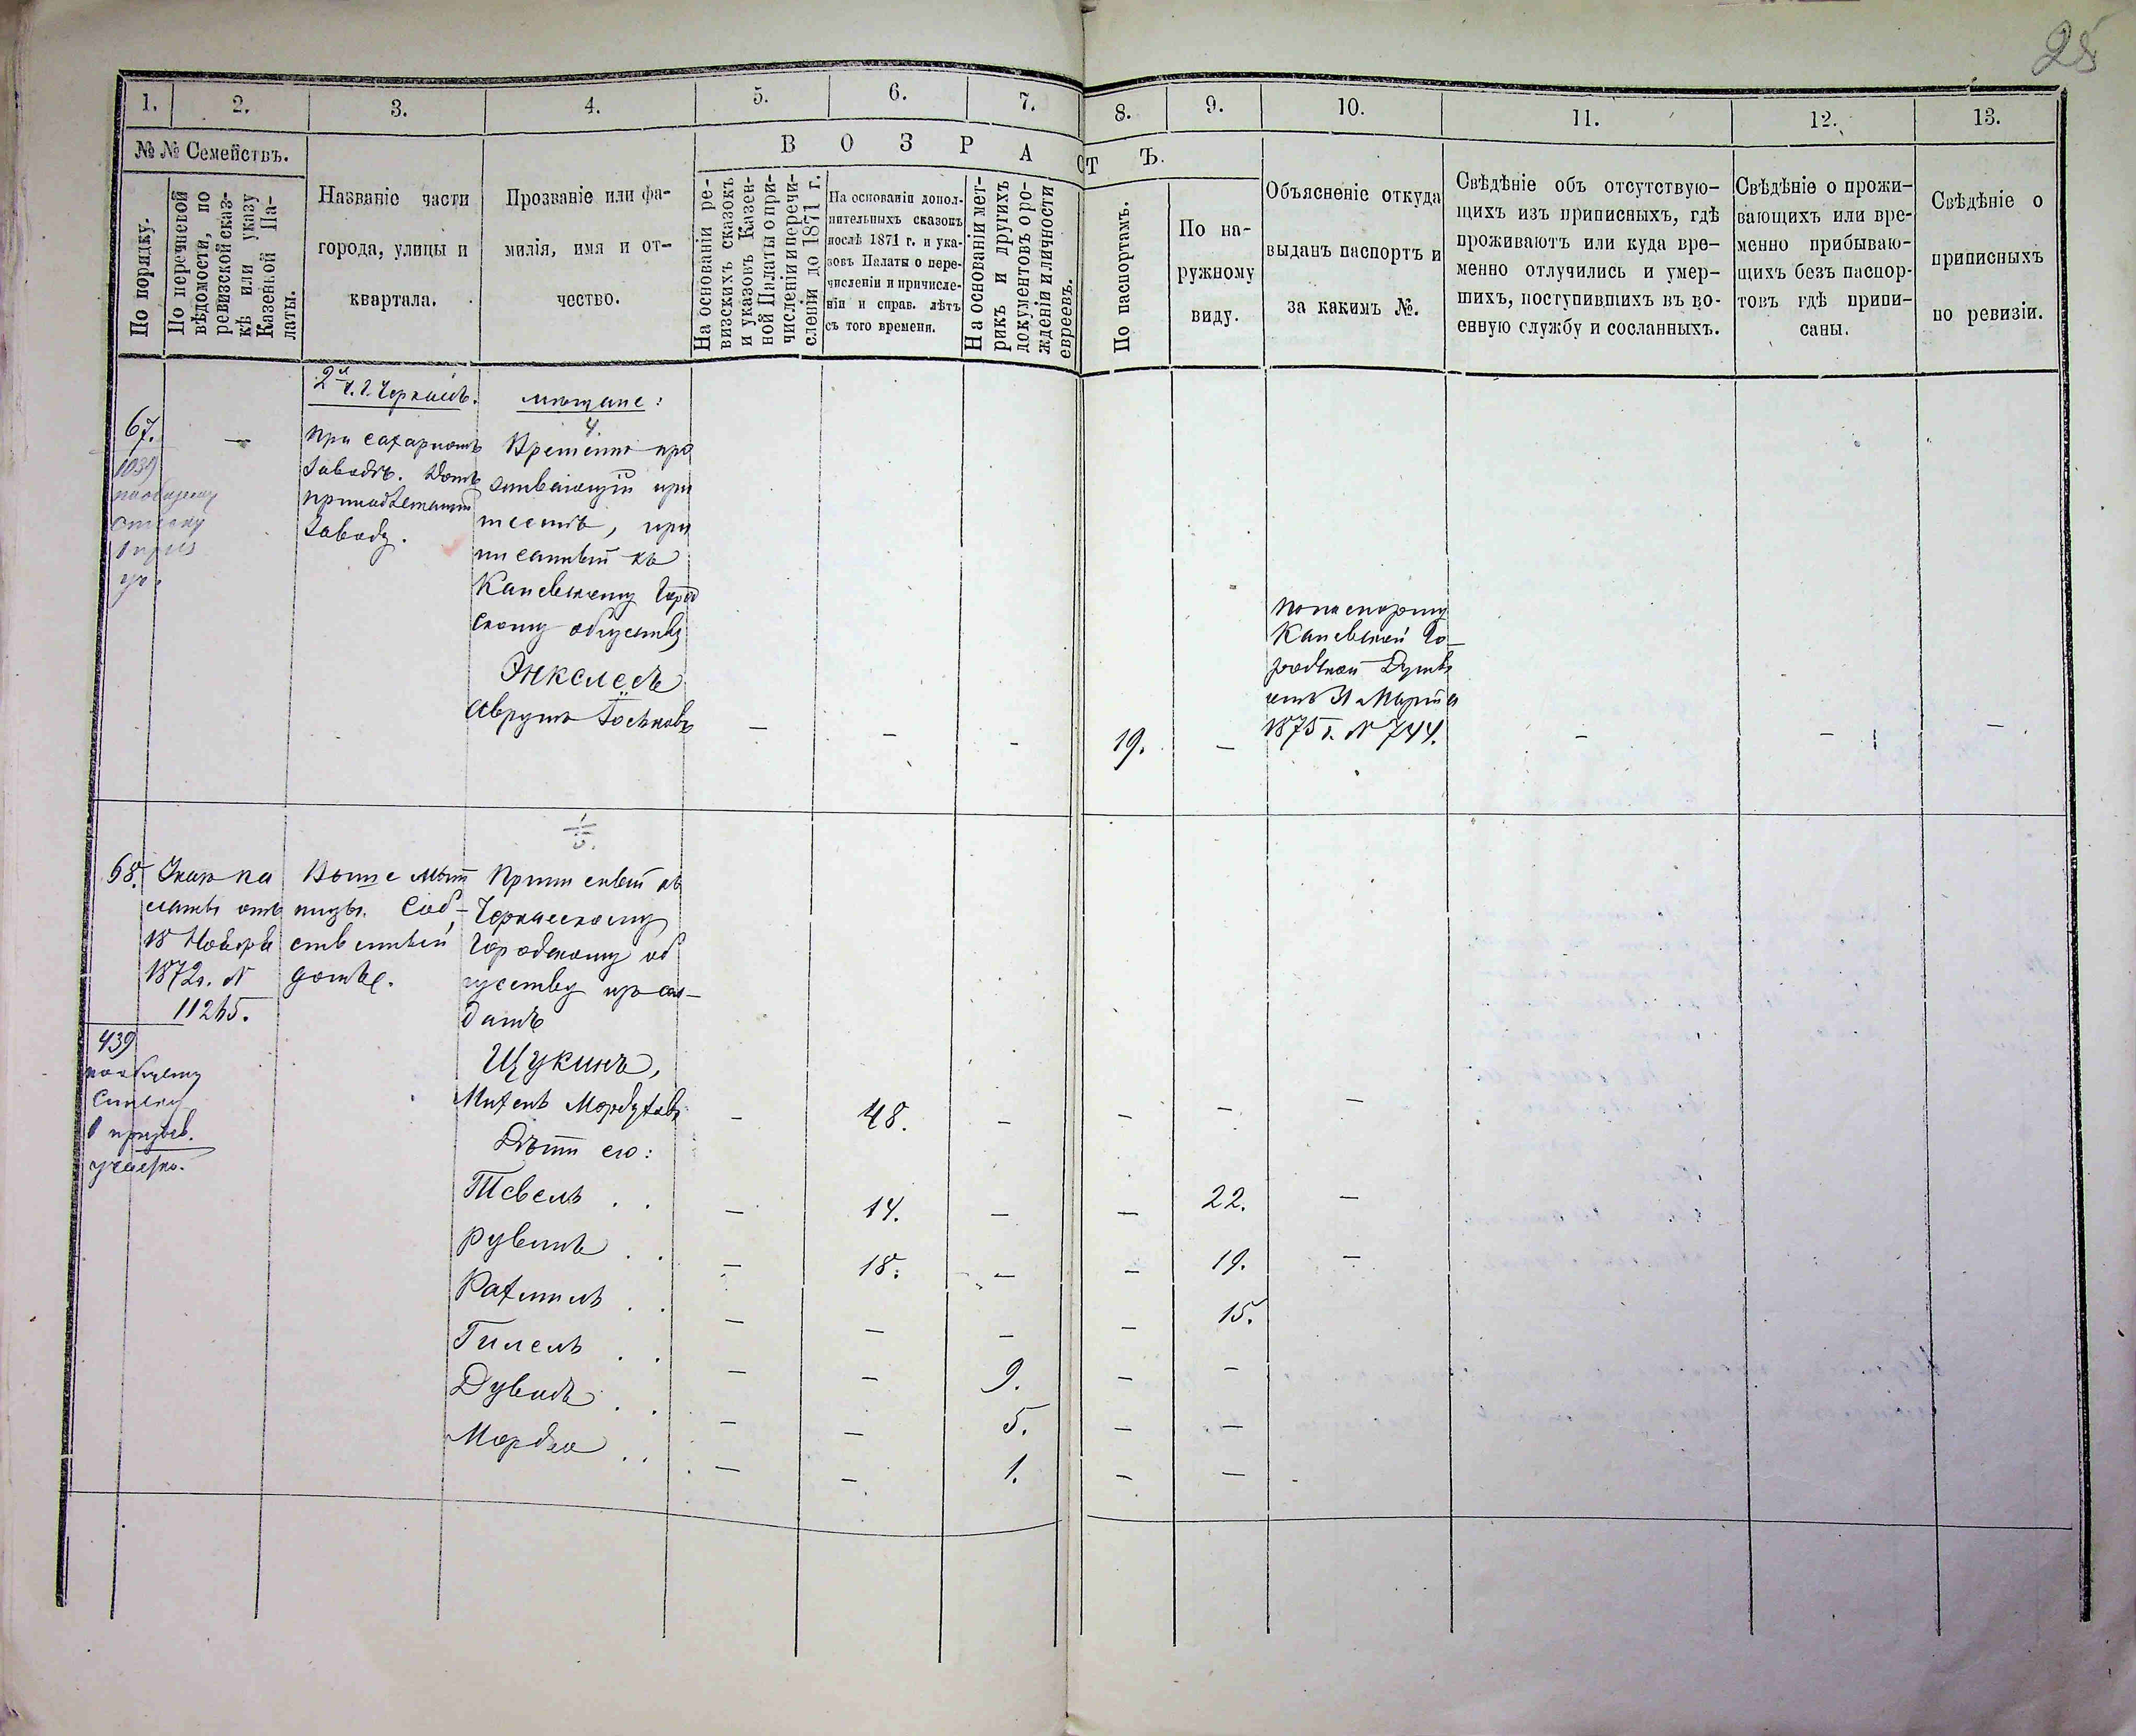 25
1. 2. 3. 4. 5. 6. 7. 8. 9. 10. 11. 12. 13.
№ № Семействъ.
В О З Р А С Т Ъ.
По порядку.
По перечневой
вѣдомости, по
ревизской сказ-
кѣ или указу
Казенной Па-
латы.
Названіе части
города, улицы и
квартала.
Прозваніе или фа-
милія, имя и от-
чество.
На основаніи ре-
визскихъ сказокъ
и указовъ Казен-
ной Палаты о при-
численіи и перечи-
сленіи до 1871 г.
На основаніи допол-
нительныхъ сказокъ
послѣ 1871 г. и ука-
зовъ Палаты о пере-
численіи и причисле-
ніи и справ. лѣтъ
съ того времени.
На основаніи мет-
рикъ и другихъ
документовъ о ро-
жденіи и личности
евреевъ.
По паспортамъ.
По на-
ружному
виду.
Объясненіе откуда
выданъ паспортъ и
за какимъ №.
Свѣдѣніе объ отсутствую-
щихъ изъ приписныхъ, гдѣ
проживаютъ или куда вре-
менно отлучились и умер-
шихъ, поступившихъ въ во-
енную службу и сосланныхъ.
Свѣдѣніе о прожи-
вающихъ или вре-
менно прибываю-
щихъ безъ паспор-
товъ гдѣ припи-
саны.
Свѣдѣніе о
приписныхъ
по ревизіи.
67.
1039
по общему
списку
—
2й ч. г. Черкассъ.
при сахарномъ
заводѣ. Домъ
принадлежащій
заводу.
мѣщане:
4.
Временно про
живающій при
мѣстѣ, при
писанный къ
Каневскому Город
скому обществу
Энкелесъ
Аврумъ Іосѣновъ
— — — 19. —
По паспорту
Каневской Го-
родской Думы
отъ 31 Марта
1875 г. № 744.
— — —
68.
Указъ Па
латы отъ
18 Ноября
1872 г. №
11245.
439
по общему
списку
1 призыв.
участка.
Выше мѣст
ницы. Соб-
ственный
домъ.
5.
Приписный къ
Черкасскому
Городскому об
ществу изъ сол-
датъ
Щукинъ,
Михель Мордуховъ — 48. — — — —
Дѣти его:
Тевель . . — 14. — — 22. —
Рувинъ . . — 18. — — 19. —
Рахмиль . . — — — — 15.
Гилель . . — — 9. — —
Дувидъ . . — — 5. — —
Мордко . . — — 1. — —